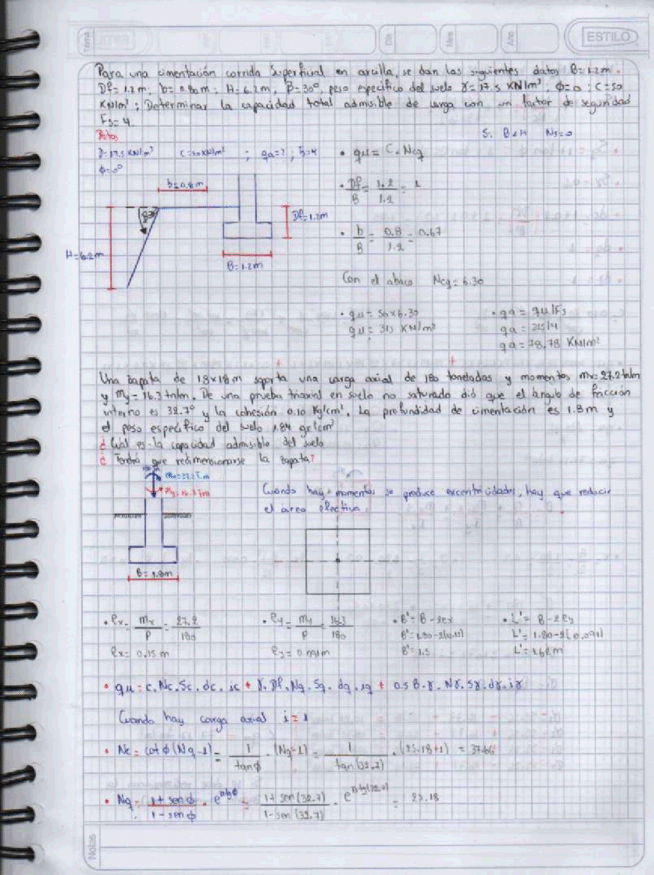 ESTILO
Para una cimentación corrida superficial en arcilla, se dan los siguientes datos: B=1.2m.
Df=1.2m, b=0.80m, H=6.2m, β=30°, peso especifico del suelo γ=17.5 KN/m³, φ=0; C=50
KN/m²; Determinar la capacidad total admisible de carga con un factor de seguridad
Fs=4
Datos
Si B<H Ns=0
γ=17.5 KN/m³ C=50KN/m² ; qa=?, Fs=4
φ=0°
• qu = C. Ncq
b=0.8m
• Df/B = 1.2/1.2 = 1
Df=1.2m
H=6.2m
• b/B = 0.8/1.2 = 0.67
B=1.2m
Con el abaco Ncq = 6.30
• qu = 50x6.30 • qa = qu/Fs
qu = 315 KN/m² qa = 315/4
qa = 78.78 KN/m²
Una zapata de 1.8x1.8m soporta una carga axial de 180 toneladas y momentos Mx=27.2 tnm
y My=16.3 tnm. De una prueba triaxial en suelo no saturado dió que el ángulo de fricción
interno es 32.7° y la cohesión 0.10 Kg/cm². La profundidad de cimentación es 1.8m y
el peso especifico del suelo 1.84 gr/cm³
¿ Cuál es la capacidad admisible del suelo
¿ Tendrá que redimensionarse la zapata?
Cuando hay momentos se produce excentricidades, hay que reducir
el area efectiva
B=1.8m
• ex = Mx/P = 27.2/180 • ey = My/P = 16.3/180 • B' = B - 2ex • L' = B - 2ey
B' = 1.80 - 2(0.15) L' = 1.80 - 2(0.091)
ex = 0.15 m ey = 0.091m B' = 1.5 L' = 1.62m
• qu = c. Nc. Sc. dc. ic + γ. Df. Nq. Sq. dq. iq + 0.5 B. γ. Nγ. Sγ. dγ. iγ
Cuando hay carga axial i = 1
• Nc = cot φ (Nq-1) = 1/tanφ . (Nq-1) = 1/tan(32.7) . (25.18-1) = 37.66
• Nq = 1+senφ/1-senφ . e^πtgφ = 1+sen(32.7)/1-sen(32.7) . e^πtg(32.7) = 25.18
Notas